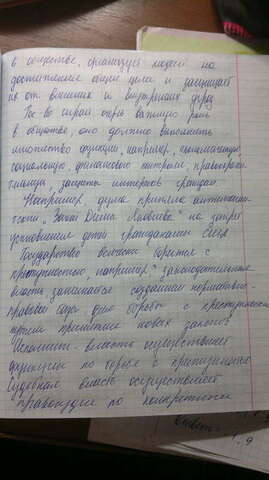 в обществе, организует людей на
достижение общей цели и защищает
их от внешних и внутренних угроз
Гос-во играет очень важную роль
в обществе, оно должно выполнять
множество функций, например, экономическую,
социальную, финансового контроля, правоохрани
тельную, защиты интересов граждан
Например, дума приняла
закон, "Закон Димы Яковлева" на запрет
усыновления детей гражданами США
Государство всячески борется с
преступностью, например, законодательная
власть занимается созданием нормативно-
правовой базы для борьбы с преступность
путем принятия новых законов
Исполнит. власть осуществляет
функции по борьбе с преступлениями
Судебная власть осуществляет
правосудие по конкретным
ответ